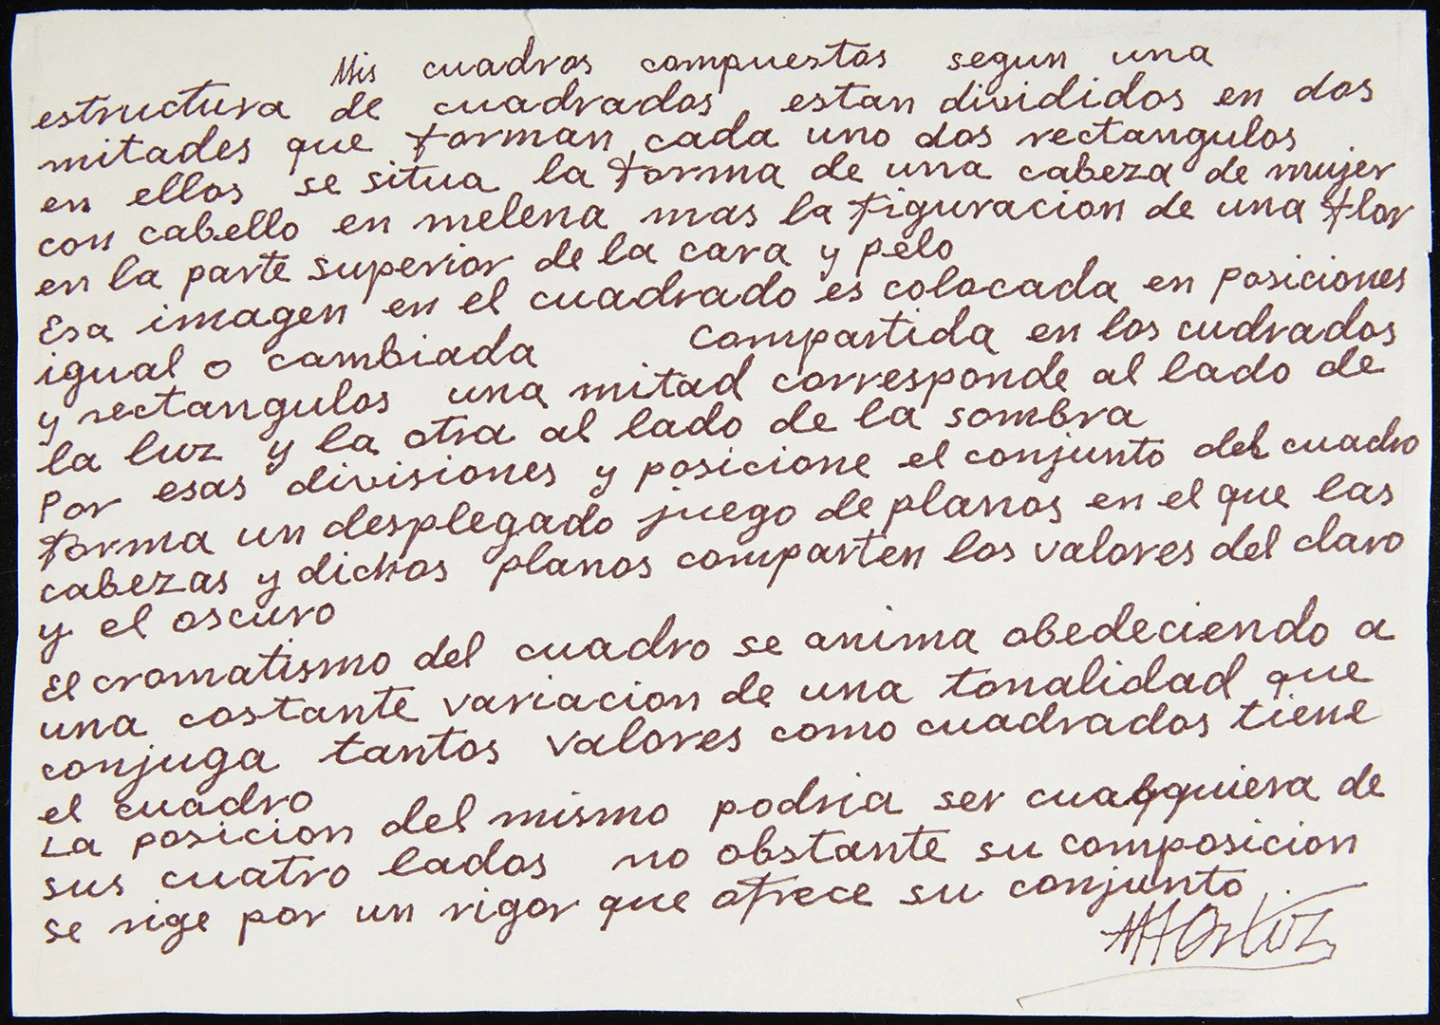 Mis cuadros compuestos segun una
estructura de cuadrados, estan divididos en dos
mitades que forman cada uno dos rectangulos
en ellos se situa la forma de una cabeza de mujer
con cabello en melena mas la figuracion de una flor
en la parte superior de la cara y pelo
Esa imagen en el cuadrado es colocada en posiciones
igual o cambiada compartida en los cudrados
y rectangulos una mitad corresponde al lado de
la luz y la otra al lado de la sombra
Por esas divisiones y posicione el conjunto del cuadro
forma un desplegado juego de planos en el que las
cabezas y dichos planos comparten los valores del claro
y el oscuro
El cromatismo del cuadro se anima obedeciendo a
una costante variacion de una tonalidad que
conjuga tantos valores como cuadrados tiene
el cuadro
La posicion del mismo podria ser cualquiera de
sus cuatro lados no obstante su composicion
se rige por un rigor que ofrece su conjunto
M H Ortuz